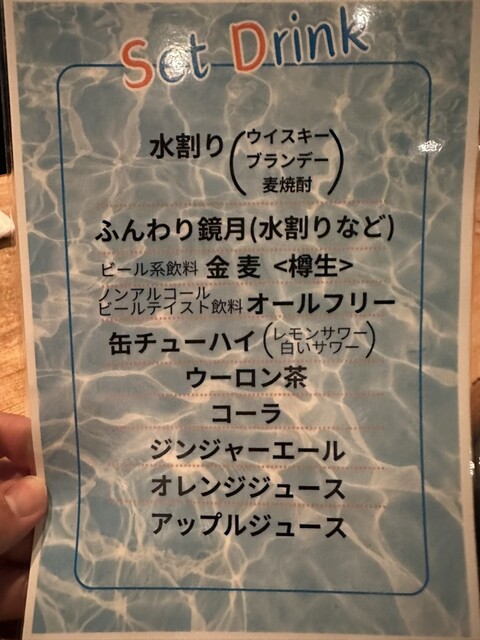 Set Drink
水割り(ウイスキー
ブランデー
麦焼酎)
ふんわり鏡月(水割りなど)
ビール系飲料 金麦 <樽生>
ノンアルコール
ビールテイスト飲料 オールフリー
缶チューハイ(レモンサワー
白いサワー)
ウーロン茶
コーラ
ジンジャーエール
オレンジジュース
アップルジュース